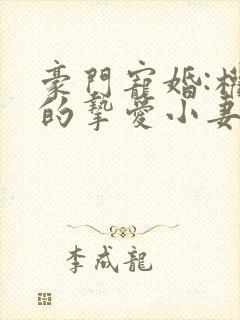 豪門寵婚:權
的摯愛小妻
李成龍